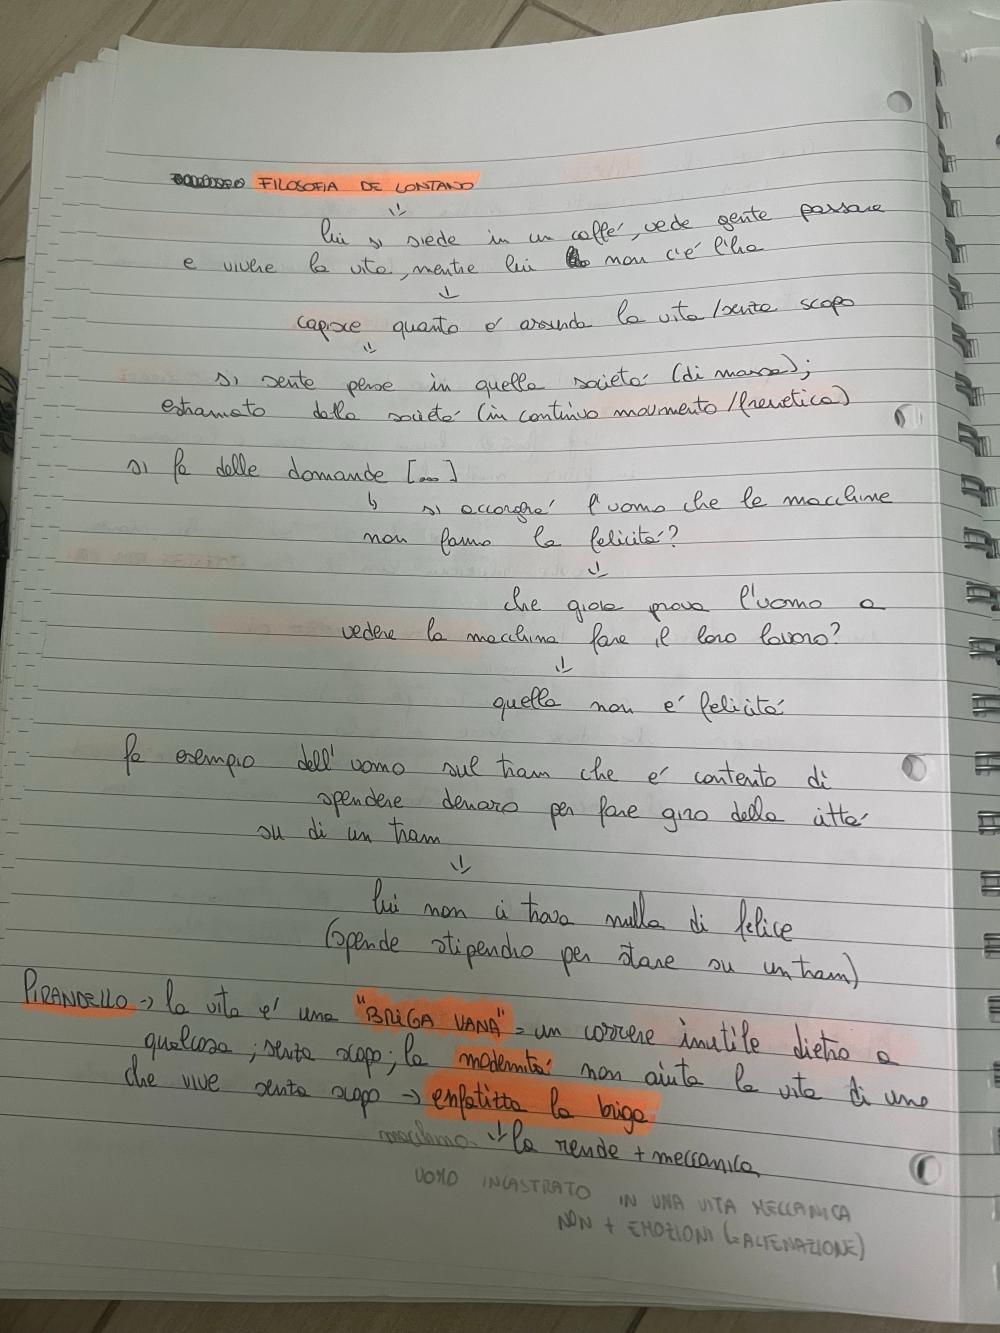 FILOSOFIA DE LONTANO
lui si siede in un caffé, vede gente passare
e vivere la vita, mentre lui non c'é l'ha
capisce quanto é assurda la vita/senza scopo
si sente perse in quella societá (di massa);
estramato dalla societá (in continuo movimento/frenetica)
si fa delle domande [...]
si accorghé l'uomo che le macchine
non fanno la felicitá?
che gioia prova l'uomo a
vedere la macchina fare il loro lavoro?
quella non é felicitá
fa esempio dell'uomo sul tram che é contento di
spendere denaro per fare giro della cittá
su di un tram
lui non ci trova nulla di felice
(spende stipendio per stare su un tram)
PIRANDELLO → la vita é una "BRIGA VANA" = un correre inutile dietro a
qualcosa; senza scopo; la modernitá non aiuta la vita di uno
che vive senza scopo → enfatizza la briga
la rende + meccanica
UOMO INCASTRATO IN UNA VITA MECCANICA
NON + EMOZIONI (=ALIENAZIONE)